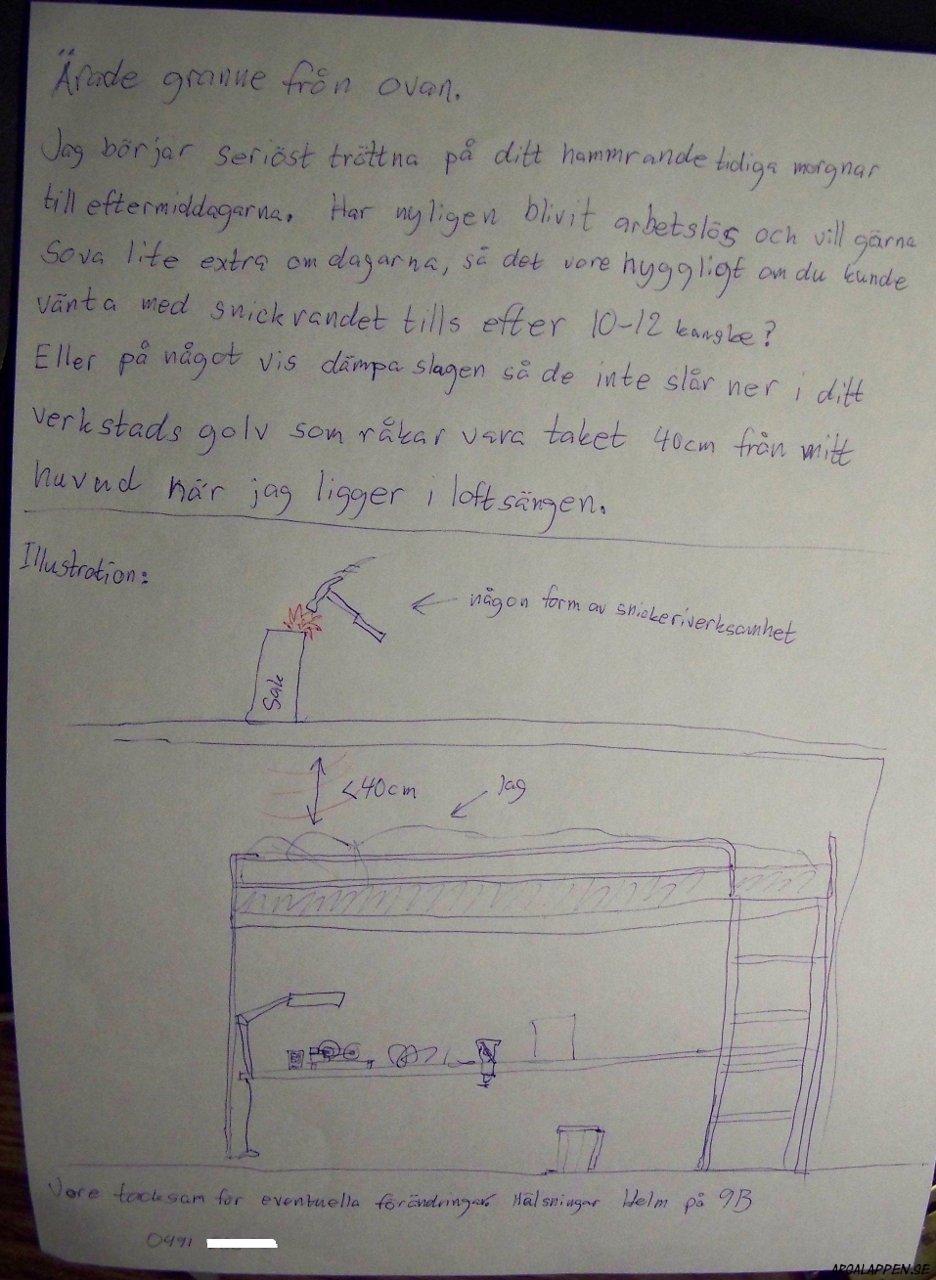 Ärade granne från ovan.
Jag börjar seriöst tröttna på ditt hammrande tidiga morgnar
till eftermiddagarna. Har nyligen blivit arbetslös och vill gärna
sova lite extra om dagarna, så det vore hyggligt om du kunde
vänta med snickrandet tills efter 10-12 kanske?
Eller på något vis dämpa slagen så de inte slår ner i ditt
verkstads golv som råkar vara taket 40cm från mitt
huvud när jag ligger i loftsängen.
Illustration:
någon form av snickeriverksamhet
Sak
<40cm
Jag
Vore tacksam för eventuella förändringar. Hälsningar Helm på 9B
0491
ARGALAPPEN.SE